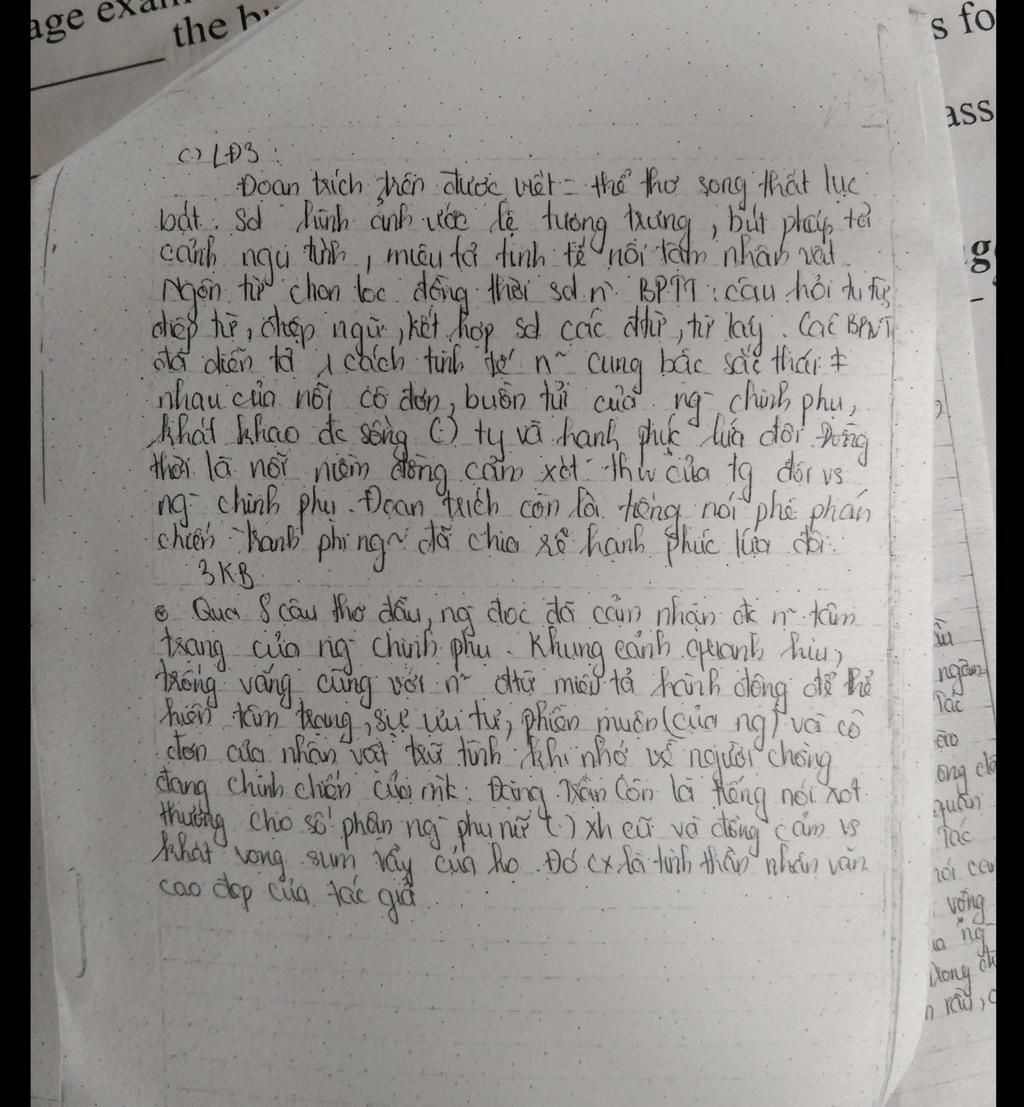 age exam
the b
s fo
ass
g
c) LĐ3 :
Đoạn trích trên được viết = thể thơ song thất lục
bát. Sd hình ảnh ước lệ tượng trưng, bút pháp tả
cảnh ngụ tình, miêu tả tinh tế nội tâm nhân vật.
Ngôn từ chọn lọc đồng thời sd n~ BPTT : câu hỏi tu từ,
điệp từ, điệp ngữ, kết hợp sd các đtừ, từ láy. Các BPNT
đã diễn tả 1 cách tinh tế n~ cung bậc sắc thái ≠
nhau của nỗi cô đơn, buồn tủi của ng chinh phụ,
khát khao đc sống (.) ty và hạnh phúc lứa đôi. Đồng
thời là nỗi niềm đồng cảm xót thw của tg đối vs
ng chinh phụ. Đoạn trích còn là tiếng nói phê phán
chiến tranh phi ng~ đã chia rẽ hạnh phúc lứa đôi.
3 KB
Qua 8 câu thơ đầu, ng đọc đã cảm nhận đk n~ tâm
trạng của ng chinh phụ. Khung cảnh quạnh hiu,
trống vắng cùng với n~ đtừ miêu tả hành động để thể
hiện tâm trạng, sự ưu tư, phiền muộn (của ng) và cô
đơn của nhân vật trữ tình khi nhớ về người chồng
đang chinh chiến của mk. Đặng Trần Côn là tiếng nói xót
thương cho số phận ng phụ nữ (.) xh cũ và đồng cảm vs
khát vọng sum vầy của họ. Đó cx là tinh thần nhân văn
cao đẹp của tác giả.
ngâm
Tác
quân
Tác
vống
ng